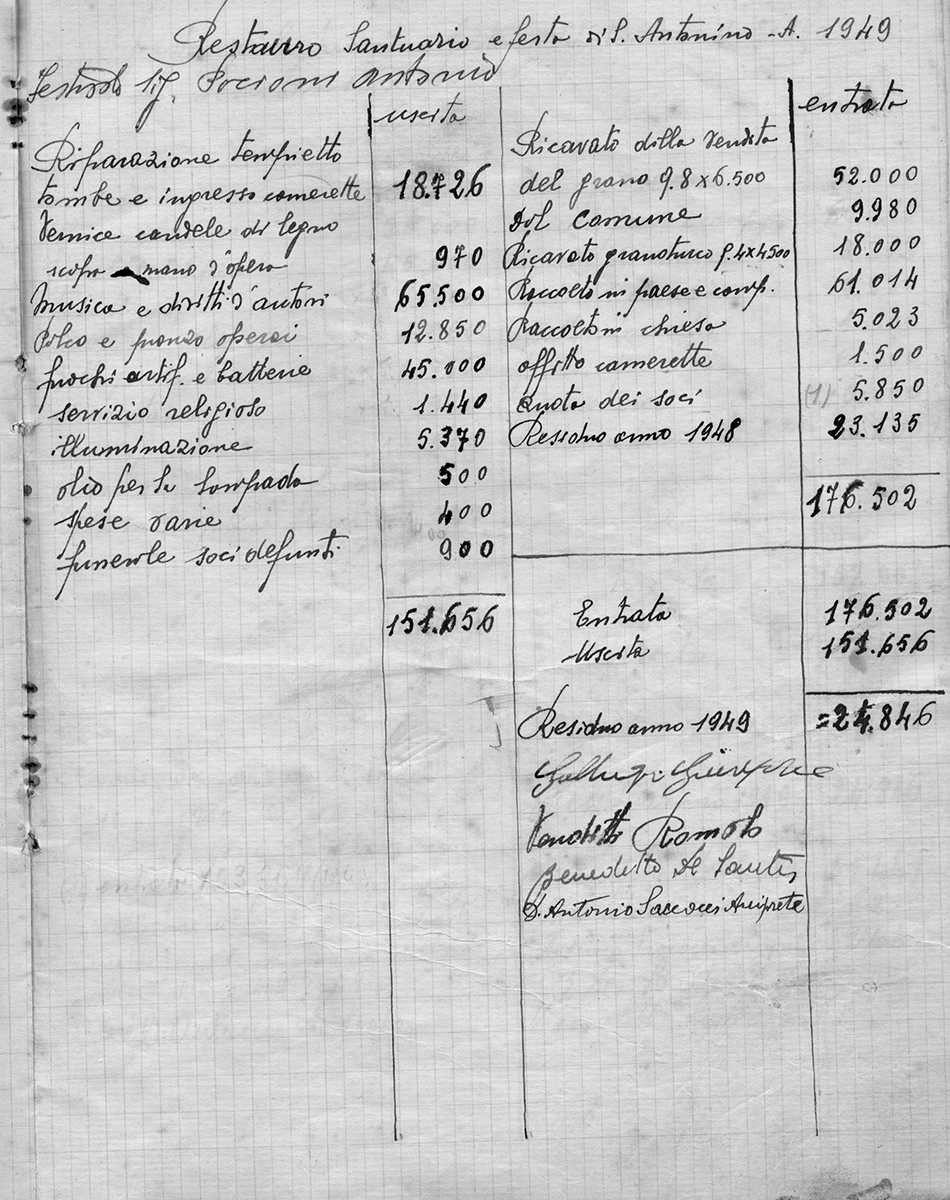 Restauro Santuario e festa di S. Antonino - A. 1949
Sig. Antonio
uscita
Riparazione tempietto
tombe e ingresso camerette 18.726
Vernice candele di legno
scopa mano d'opera 970
Musica e diritti d'autori 65.500
Palco e pranzo operai 12.850
fuochi artif. e batterie 45.000
servizio religioso 1.440
illuminazione 5.370
olio per la lampada 500
spese varie 400
funerale soci defunti 900
151.656
entrata
Ricavato dalla vendita
del grano q. 8 x 6.500 52.000
Dal Comune 9.980
Ricavato granoturco q. 4 x 4500 18.000
Raccolto in paese e camp. 61.014
Raccolto in chiesa 5.023
affitto camerette 1.500
quota dei soci (1) 5.850
Residuo anno 1948 23.135
176.502
Entrata 176.502
Uscita 151.656
Residuo anno 1949 = 24.846
Giuseppe
Venditti Romolo
Benedetto De Santis
D. Antonio Arciprete